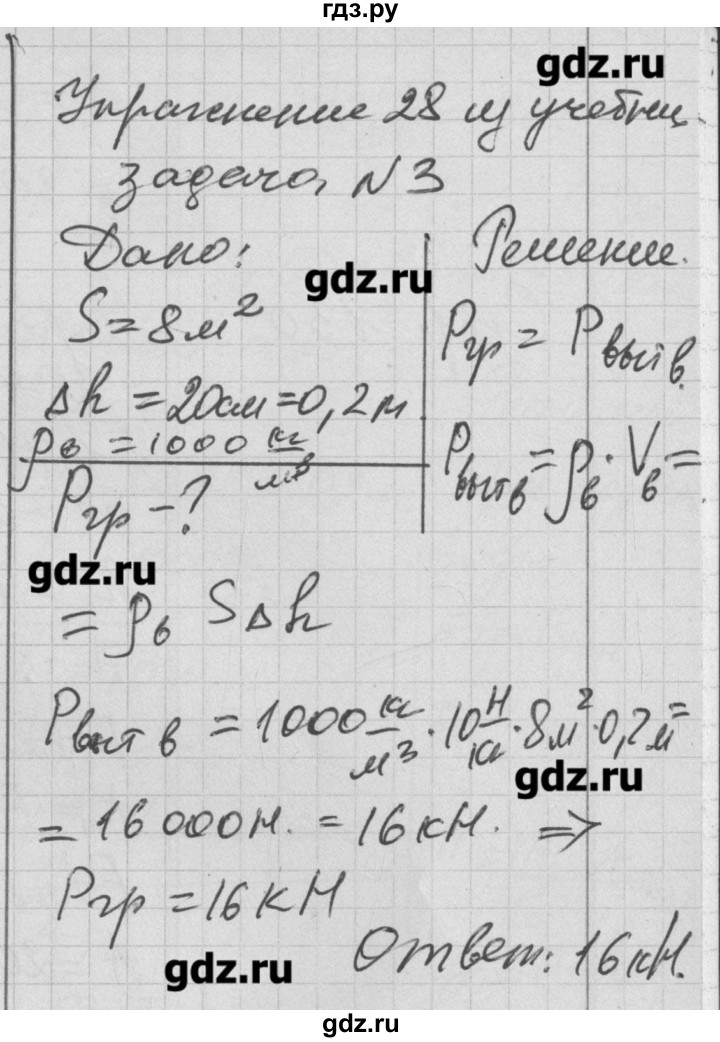 гдз.ру
gdz.ru
Упражнение 28 из учебник.
задача N3
Дано:
gdz.ru
S=8м²
Δh=20см=0,2м.
ρв=1000 кг/м³
Pгр-?
gdz.ru
Решение.
Pгр = Pвыт в.
Pвыт в = ρв · Vв =
= ρв SΔh
Pвыт в = 1000 кг/м³ · 10 Н/кг · 8м² · 0,2м =
gdz.ru
= 16 000Н. = 16 кН. ⇒
Pгр = 16 кН
gdz.ru
Ответ: 16кН.
gdz.ru